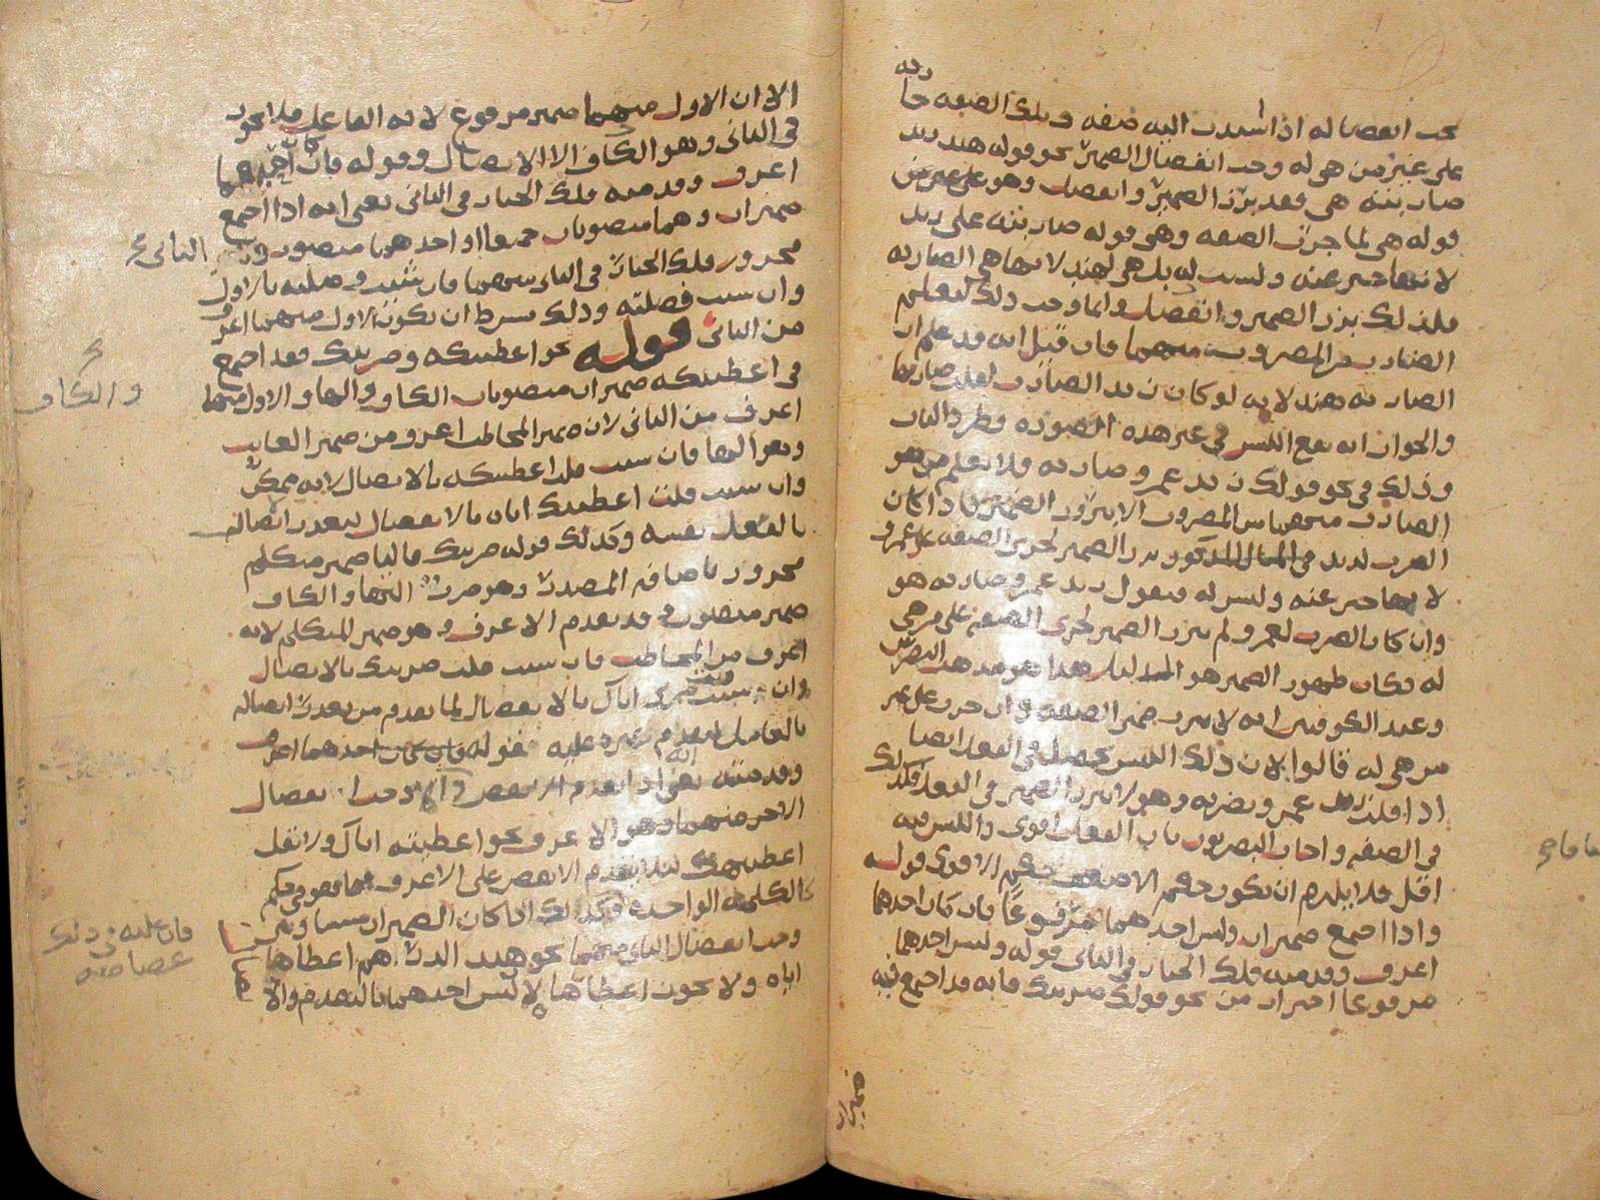 يجب انفصاله اذا اسندت اليه صفه وتلك الصفه جاريه
على غير من هي له وجب انفصال الضمير نحو قوله هند زيد
ضاربته هي فقد برز الضمير وانفصل وهو على من
قوله هي لما جرت الصفه وهي قوله ضاربته على زيد
لانها خبر عنه وليست له بل هي لهند لانها هي الضاربه
فلذلك برز الضمير وانفصل وانما وجب ذلك ليعلم
الضارب من المضروب منهما فان قيل انه قد علم ان
الضاربه هند لانه لو كان زيد الضارب لقلت ضاربها
والجواب انه يقع اللبس في غير هذه الصوره وطرد الباب
وذلك في نحو قولك زيد عمرو ضاربه فلا يعلم من هو
الضارب منهما من المضروب الا ببروز الضمير فاذا كان
الضرب لزيد في المثال المذكور برز الضمير لجري الصفه على عمرو
لانها خبر عنه وليس له فتقول زيد عمرو ضاربه هو
وان كان الضرب لعمرو لم يبرز الضمير لجري الصفه على من هي
له فكان ظهور الضمير هو هذا هو مذهب البصريين
وعند الكوفيين انه لا يبرز ضمير الصفه وان جرت على غير
من هي له قالوا لان ذلك اللبس يحصل في الفعل ايضا
اذا قلت زيد عمرو يضربه وهو لا يبرز الضمير في الفعل فكذلك
في الصفه واجاب البصريون بان الفعل اقوى واللبس فيه
اقل فلا يلزم ان يكون حكم الاضعف حكم الاقوى قوله
واذا اجتمع ضميران وليس احدهما مرفوعا فان كان احدهما
اعرف وقدمته فلك الخيار في الثاني قوله وليس احدهما
مرفوعا احتراز من نحو قولك ضربتك فانه قد اجتمع فيه
ضميران
الا ان الاول منهما ضمير مرفوع لانه الفاعل فلا يجوز
في الثاني وهو الكاف الا الاتصال وقوله فان كان احدهما
اعرف وقدمته فلك الخيار في الثاني يعني انه اذا اجتمع
ضميران وهما منصوبان جميعا او احدهما منصوب والثاني
مجرور فلك الخيار في الثاني منهما فان شئت وصلته بالاول
وان شئت فصلته وذلك بشرط ان يكون الاول منهما اعرف
من الثاني قوله نحو اعطيتكه وضربيك فقد اجتمع
في اعطيتكه ضميران منصوبان الكاف والهاء والاول منهما
اعرف من الثاني لان ضمير المخاطب اعرف من ضمير الغايب
وهو الهاء فان شئت قلت اعطيتكه بالاتصال لانه ممكن
وان شئت قلت اعطيتك اياه بالانفصال ليعذر اتصاله
بالفعل نفسه وكذلك قوله ضربيك فاليا ضمير متكلم
مجرور باضافه المصدر وهو ضرب اليها والكاف
ضمير منصوب وقد تقدم الاعرف وهو ضمير المتكلم لانه
اعرف من المخاطب فان شئت قلت ضربيك بالاتصال
وان شئت قلت ضربي اياك بالانفصال لما تقدم من تعذر اتصاله
بالعامل لتقدم غيره عليه فقوله فان كان احدهما اعرف
وقدمته يعني انه اذا تقدم الانقص وجب انفصال
الاخر منهما وهو الاعرف نحو اعطيته اياك ولا تقل
اعطيتهك لئلا يتقدم الانقص على الاعرف فيما هو في حكم
الكلمه الواحده وكذلك اذا كان الضميران متساويين
وجب انفصال الثاني منهما نحو هند الدراهم اعطاها
اياه ولا يجوز اعطاها لانه ليس احدهما بالتقدم والا
والكاف
فان عليه في ذلك
عصاضه